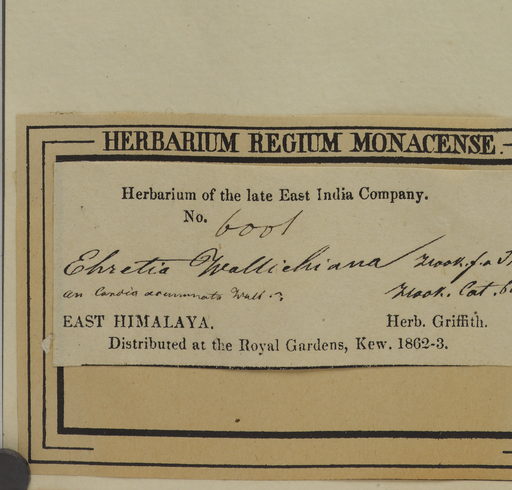 HERBARIUM REGIUM MONACENSE.
Herbarium of the late East India Company.
No. 6001
Ehretia Wallichiana Hook.f. &
an Cordia acuminata Wall. Cat.
EAST HIMALAYA. Herb. Griffith.
Distributed at the Royal Gardens, Kew. 1862-3.